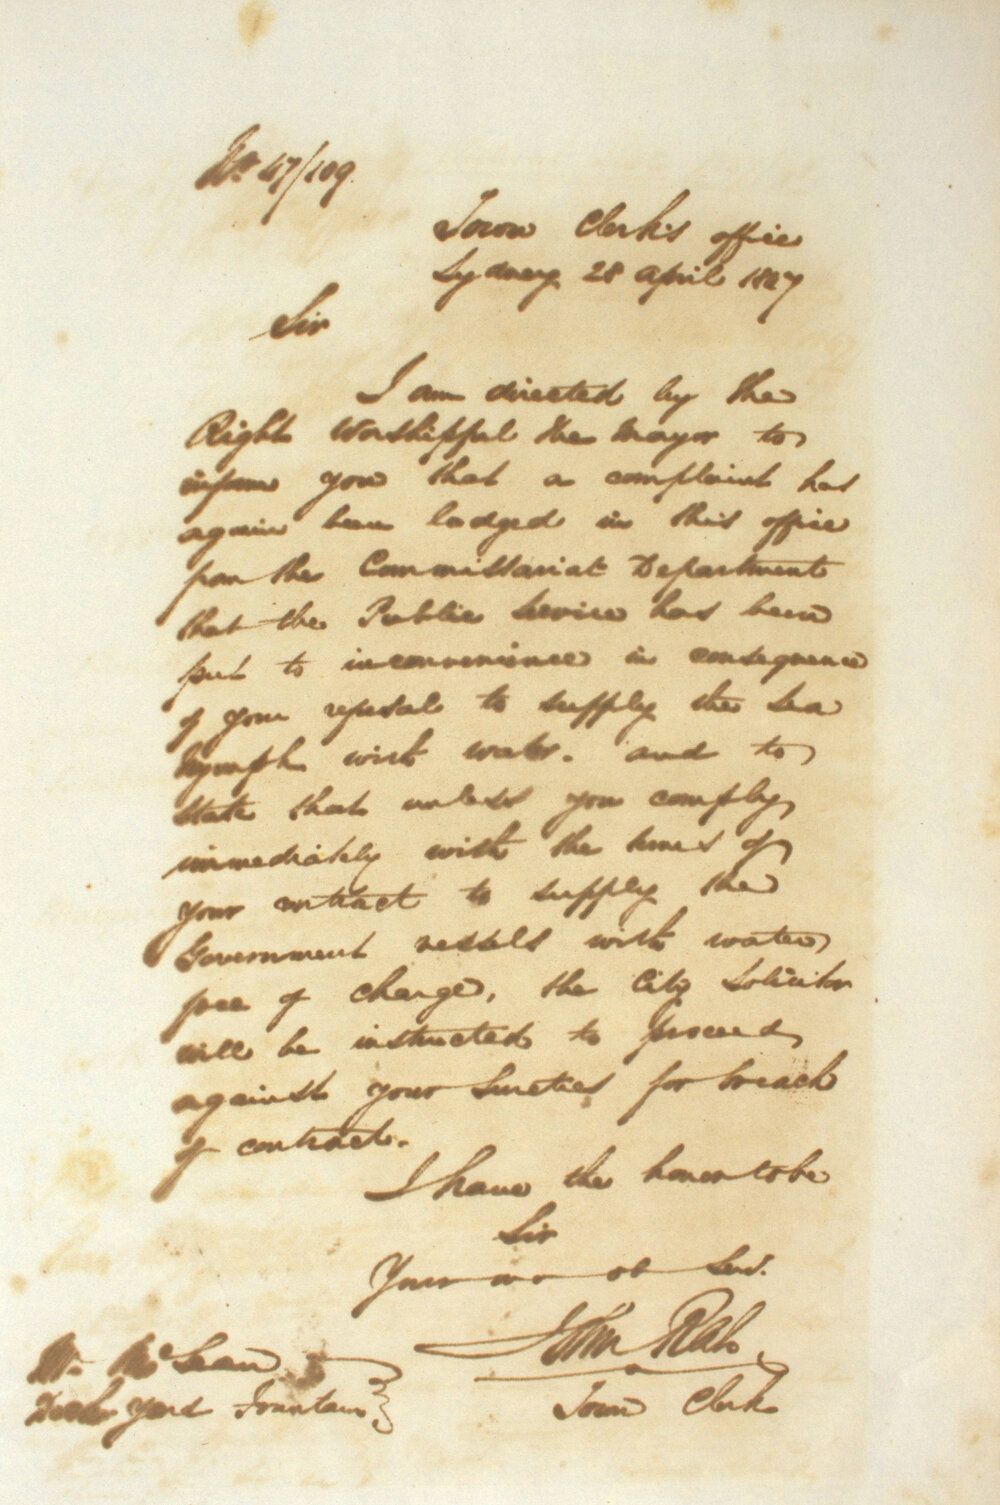 No. 47/109.
Town Clerk's office
Sydney 28 April 1847
Sir
I am directed by the
Right Worshipful the Mayor to
inform you that a complaint has
again been lodged in this office
from the Commissariat Department
that the Public Service has been
put to inconvenience in consequence
of your refusal to supply the Sea
Nymph with water. and to
state that unless you comply
immediately with the terms of
your contract to supply the
Government vessels with water
free of charge, the City Solicitor
will be instructed to proceed
against your Sureties for breach
of contract.
I have the honor to be
Sir
Your ob Serv.
John Rae
Town Clerk
Mr. McLean
Dock Yard Fountain